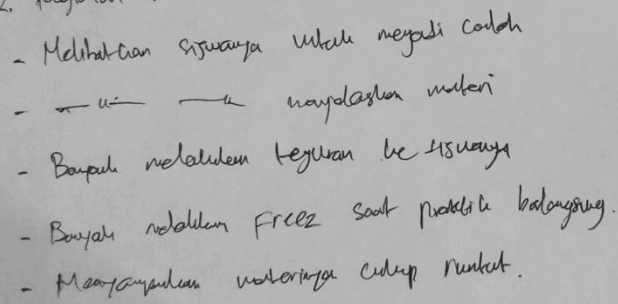 2.
- Melibatkan siswanya untuk menjadi contoh
- —〃— —〃— menjelaskan materi
- Banyak melakukan teguran ke siswanya
- Banyak melakukan Freez saat praktik berlangsung.
- Menyampaikan materinya cukup runtut.